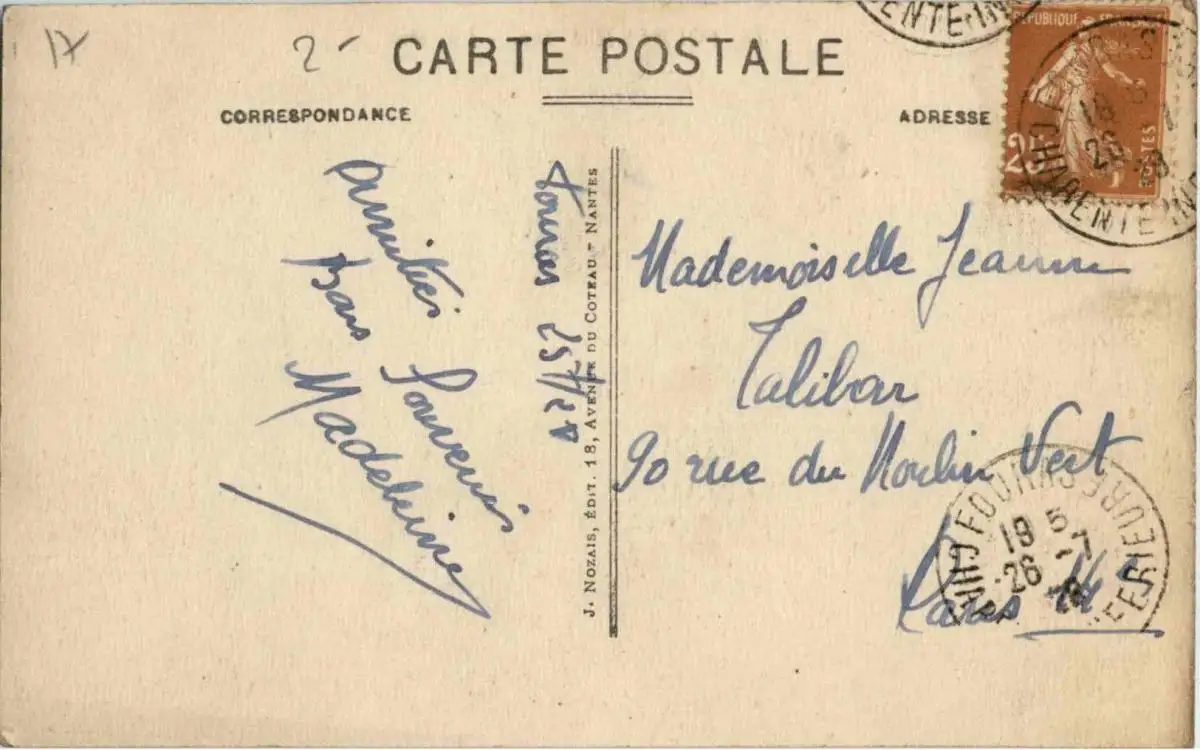 17
2-
CARTE POSTALE
CORRESPONDANCE
ADRESSE
RÉPUBLIQUE FRANÇAISE
25
Amitiés
Bons Souvenirs
Madeleine
Fouras 25/7/28
J. NOZAIS, ÉDIT. 18, AVENUE DU COTEAU - NANTES
Mademoiselle Jeanne
Talibon
90 rue du Moulin Vert
Paris 14e
FOURAS
CHARENTE INFERIEURE
19 5
26 -7
28